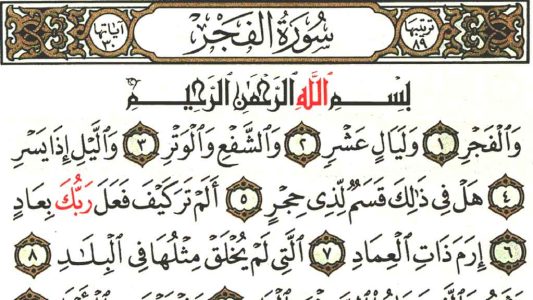 ترتيبها ٨٩ سُورَةُ الفَجْرِ آياتها ٣٠
بِسْمِ ٱللَّهِ ٱلرَّحْمَٰنِ ٱلرَّحِيمِ
وَٱلْفَجْرِ ١ وَلَيَالٍ عَشْرٍ ٢ وَٱلشَّفْعِ وَٱلْوَتْرِ ٣ وَٱلَّيْلِ إِذَا يَسْرِ
٤ هَلْ فِى ذَٰلِكَ قَسَمٌ لِّذِى حِجْرٍ ٥ أَلَمْ تَرَ كَيْفَ فَعَلَ رَبُّكَ بِعَادٍ
٦ إِرَمَ ذَاتِ ٱلْعِمَادِ ٧ ٱلَّتِى لَمْ يُخْلَقْ مِثْلُهَا فِى ٱلْبِلَٰدِ ٨